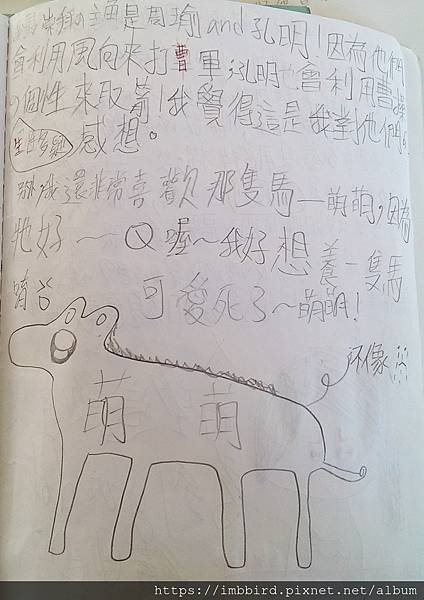 是周瑜and孔明！因為他們
會利用風向來打曹軍，孔明也會利用曹操
的個性來取箭！我覺得這是我對他們的
感想。
我還非常喜歡那隻馬—萌萌，因為
牠好～Q喔～我好想養一隻馬
可愛死了～萌萌！
不像
萌 萌
https://imbbird.pixnet.net/album